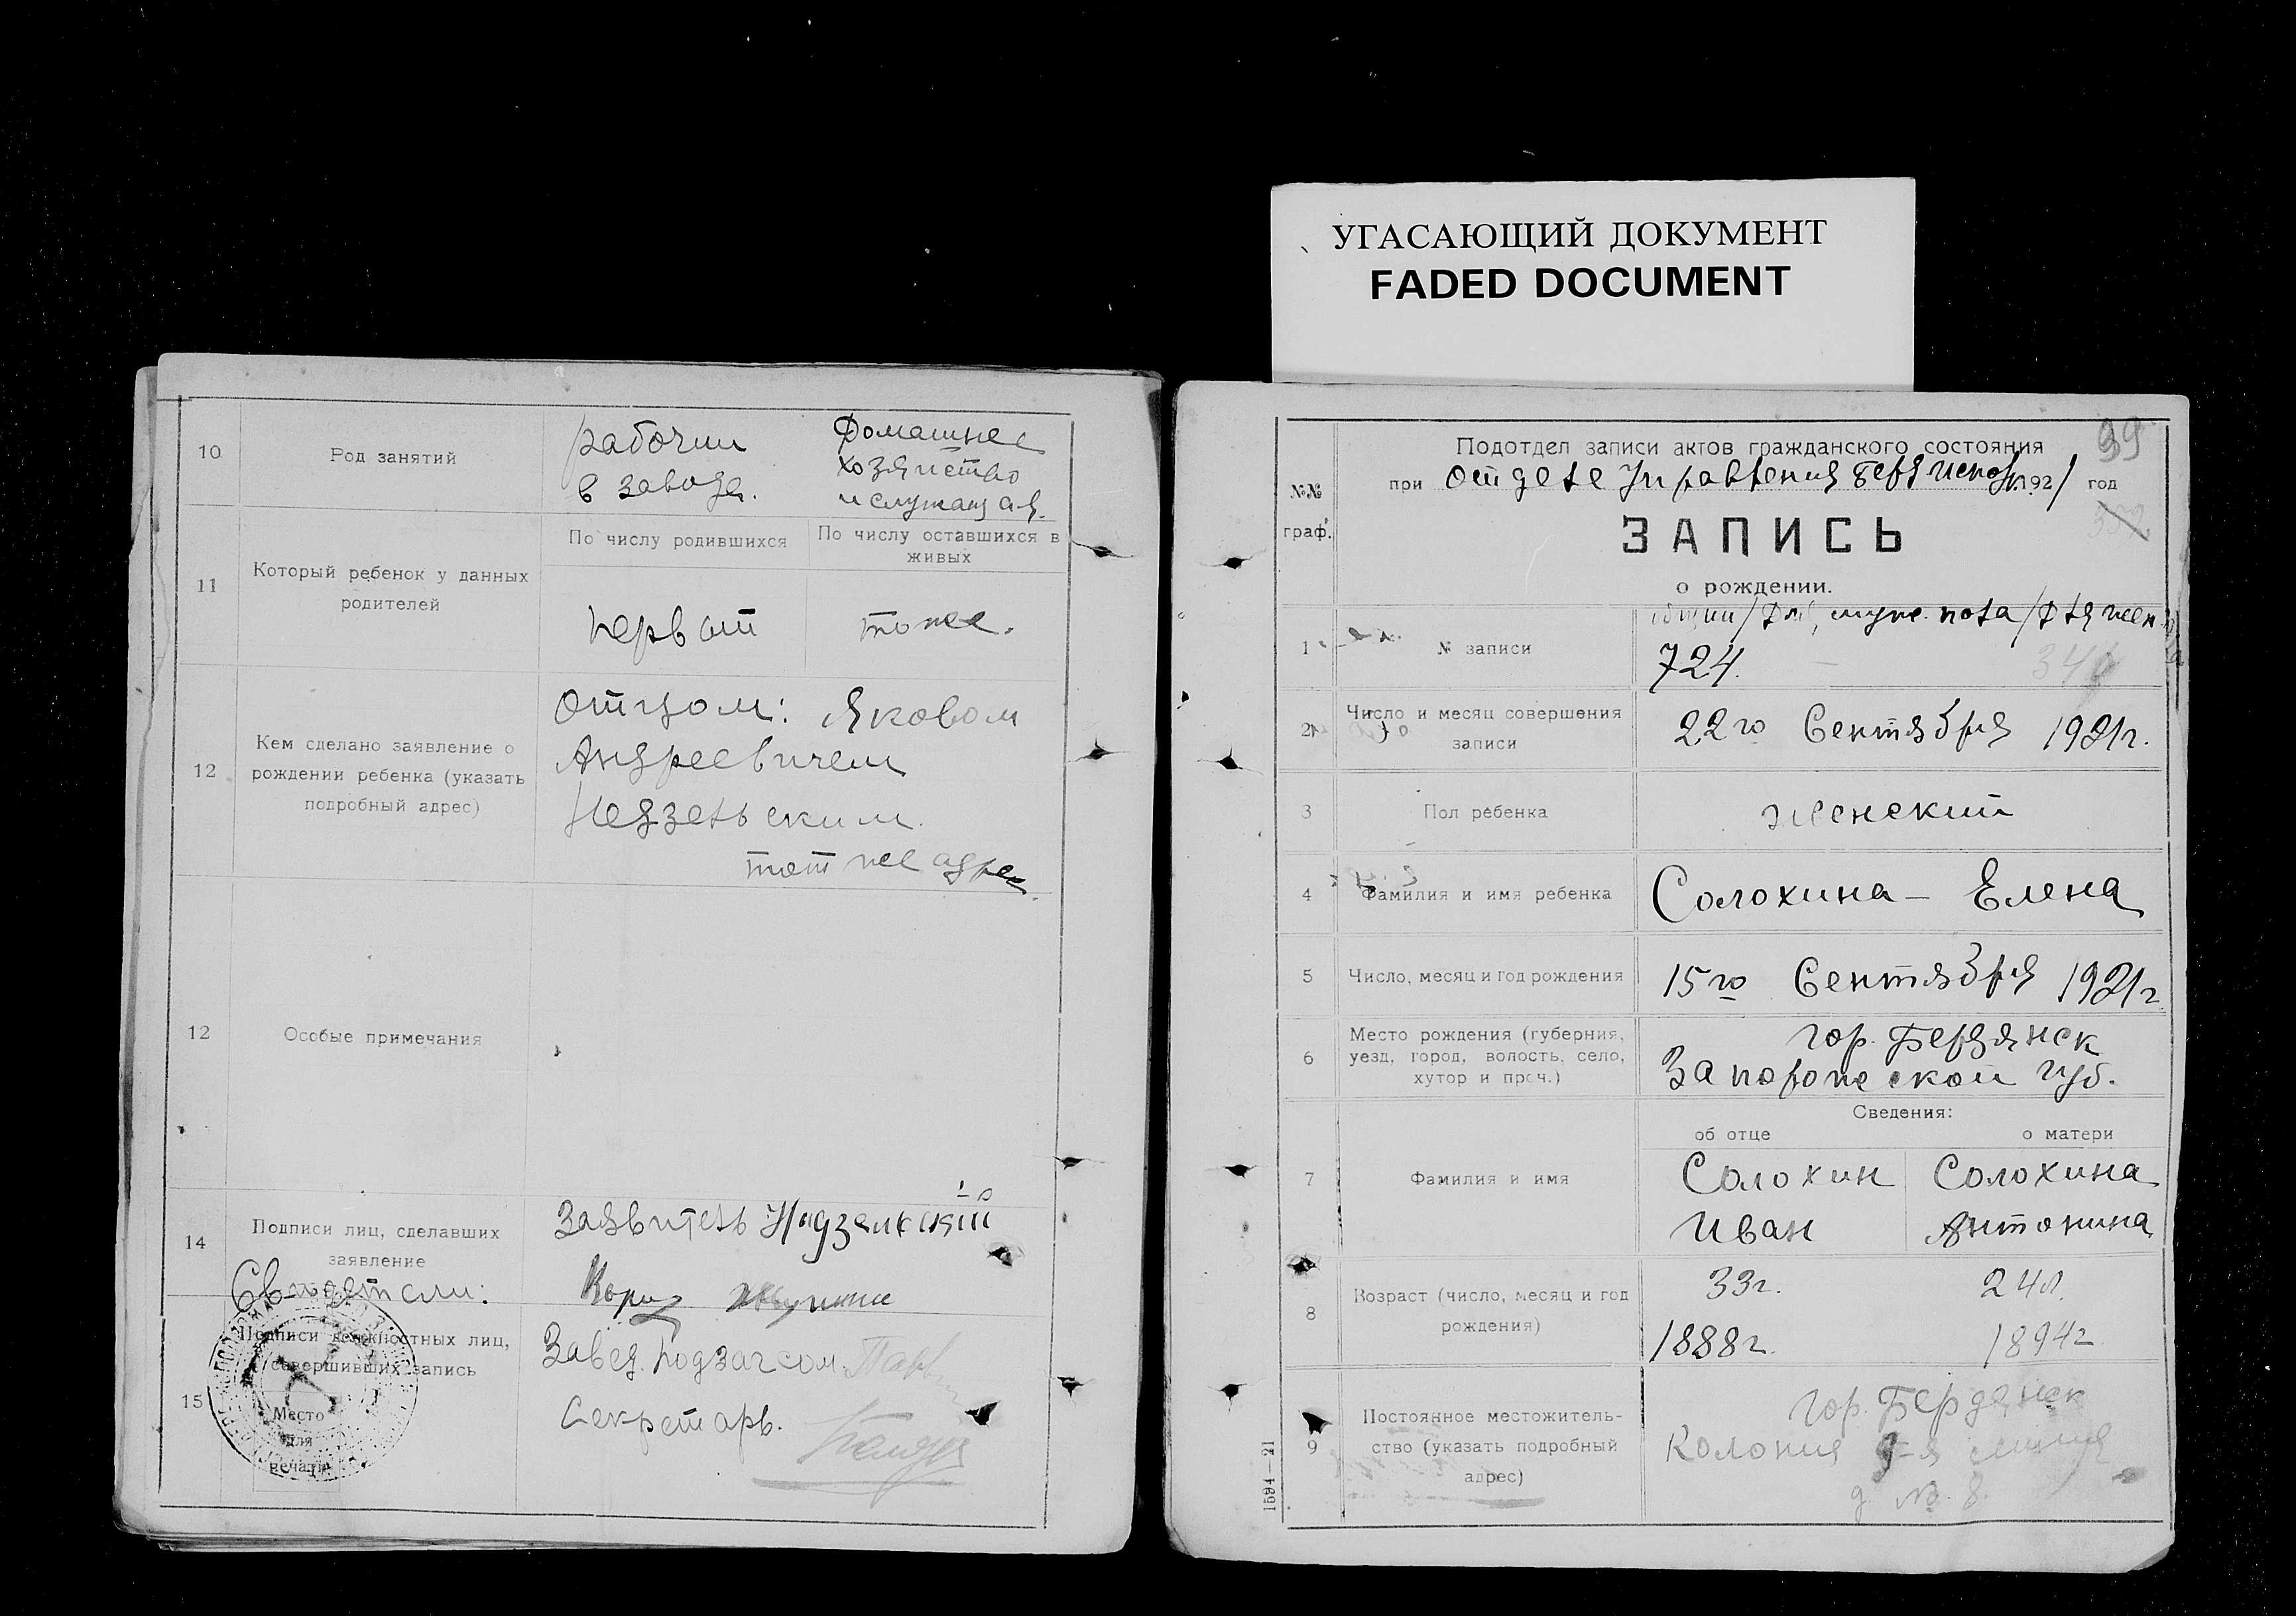 УГАСАЮЩИЙ ДОКУМЕНТ
FADED DOCUMENT
10
Род занятий
рабочий
в заводе.
Домашнее
хозяйство
и служащая.
11
Который ребенок у данных
родителей
По числу родившихся
По числу оставшихся в
живых
первый
тоже.
12
Кем сделано заявление о
рождении ребенка (указать
подробный адрес)
Отцом: Яковом
Андреевичем
Недзельским.
тот же адрес.
12
Особые примечания
14
Подписи лиц, сделавших
заявление
Свидетели:
Заявитель
15
Подписи должностных лиц,
совершивших запись
Место
для
печати
Завед. подзагсом
Секретарь.
99
Подотдел записи актов гражданского состояния
№№
граф.
при отделе Управления Бердянск 1921 год
ЗАПИСЬ
о рождении.
общий/Для муж. пола/Для жен.
1
№ записи
724.
2
Число и месяц совершения
записи
22го Сентября 1921г.
3
Пол ребенка
женский
4
Фамилия и имя ребенка
Солохина – Елена
5
Число, месяц и год рождения
15го Сентября 1921г
6
Место рождения (губерния,
уезд, город, волость, село,
хутор и проч.)
гор. Бердянск
Запорожской губ.
Сведения:
об отце
о матери
7
Фамилия и имя
Солохин
Иван
Солохина
Антонина
8
Возраст (число, месяц и год
рождения)
33г.
1888г.
24л.
1894г
9
Постоянное местожитель-
ство (указать подробный
адрес)
гор. Бердянск
Колония 9-я линия
д. № 8.
1594—21